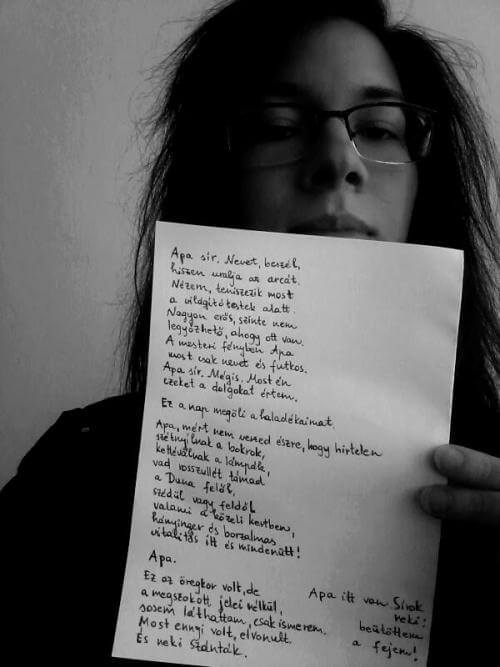 Apa sír. Nevet, beszél,
hiszen uralja az arcát.
Nézem, teniszezik most
a világítótestek alatt.
Nagyon erős, szinte nem
legyőzhető, ahogy ott van.
A mesteri fényben Apa
most csak nevet és futkos.
Apa sír. Mégis. Most én
ezeket a dolgokat értem.
Ez a nap megöli a haladékaimat.
Apa, mért nem veszed észre, hogy hirtelen
szétnyílnak a bokrok,
kettéválnak a lámpák,
vad rosszullét támad
a Duna felől,
szédül vagy feldől
valami a közeli kertben,
hányinger és borzalmas
vitalitás itt és mindenütt!
Apa.
Ez az öregkor volt, de
a megszokott jelei nélkül,
sosem láthattam, csak ismerem.
Most ennyi volt, elvonult.
És neki szánták.
Apa itt van. Sírok
neki:
beütöttem
a fejem!